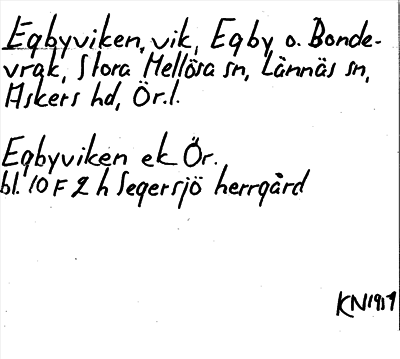 Eqbyviken, vik, Eqby o. Bonde-
vrak, Stora Mellösa sn, Lännäs sn,
Askers hd, Ör.l.
Eqbyviken ek Ör.
bl. 10 F 2 h Segersjö herrgård